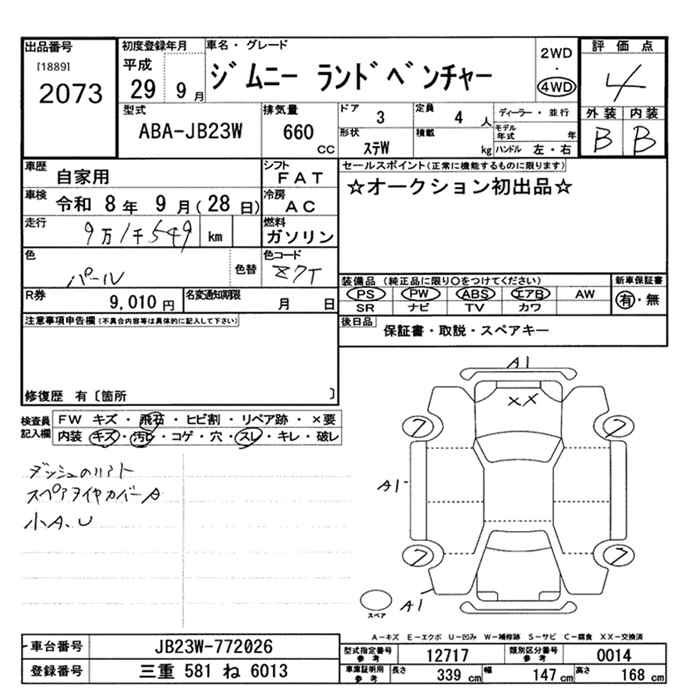 出品番号
[1889]
2073
初度登録年月
平成
29 9月
車名・グレード
ジムニー ランドベンチャー
2WD
4WD
評価点
4
外装 内装
B B
型式
ABA-JB23W
排気量
660
CC
ドア
3
定員
4 人
形状
ステW
積載
kg
ディーラー・並行
モデル年式 年
ハンドル 左・右
車歴
自家用
シフト
FAT
車検
令和 8年 9月(28日)
冷房
AC
走行
9万1千549 km
燃料
ガソリン
色
パール
色替
色コード
Z7T
R券
9,010円
名変通知期限
月 日
セールスポイント(正常に機能するものに限ります)
☆オークション初出品☆
装備品(純正品に限り○をつけてください)
PS PW ABS エアB AW
SR ナビ TV カワ
新車保証書
有・無
後日品
保証書・取説・スペアキー
注意事項申告欄(不具合内容等は具体的に記入して下さい)
修復歴 有〔箇所 〕
検査員記入欄
FW キズ・飛石・ヒビ割・リペア跡・×要
内装 キズ・汚れ・コゲ・穴・スレ・キレ・破レ
ダッシュのリフト
スペアタイヤカバーA
小A、U
A1
XX
7 7
A1
7 7
A1
スペア
A-キズ E-エクボ U-凹み W-補修跡 S-サビ C-腐食 XX-交換済
車台番号
JB23W-772026
登録番号
三重 581 ね 6013
型式指定番号
参考
12717
類別区分番号
参考
0014
車庫証明用
参考
長さ 339cm 幅 147cm 高さ 168cm